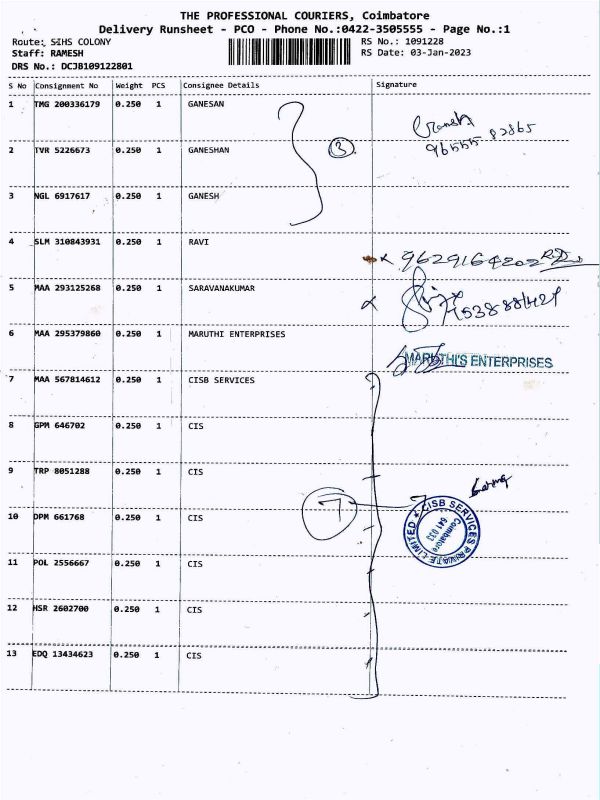 THE PROFESSIONAL COURIERS, Coimbatore
Delivery Runsheet - PCO - Phone No.:0422-3505555 - Page No.:1
Route: SIHS COLONY RS No.: 1091228
Staff: RAMESH RS Date: 03-Jan-2023
DRS No.: DCJB109122801
S No Consignment No Weight PCS Consignee Details Signature
1 TMG 200336179 0.250 1 GANESAN
2 TVR 5226673 0.250 1 GANESHAN 3
3 NGL 6917617 0.250 1 GANESH
4 SLM 310843931 0.250 1 RAVI
5 MAA 293125268 0.250 1 SARAVANAKUMAR
6 MAA 295379860 0.250 1 MARUTHI ENTERPRISES
MARUTHI'S ENTERPRISES
7 MAA 567814612 0.250 1 CISB SERVICES
8 GPM 646702 0.250 1 CIS
9 TRP 8051288 0.250 1 CIS
7
CISB SERVICES PRIVATE LIMITED
Coimbatore
641 033
10 DPM 661768 0.250 1 CIS
11 POL 2556667 0.250 1 CIS
12 HSR 2602700 0.250 1 CIS
13 EDQ 13434623 0.250 1 CIS